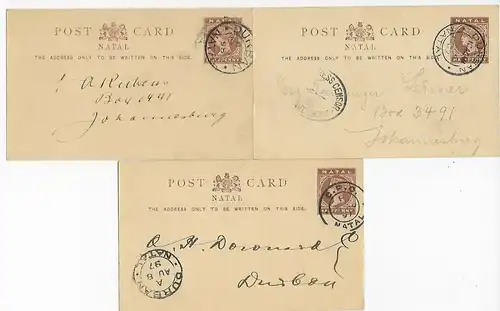 POST CARD
NATAL
THE ADDRESS ONLY TO BE WRITTEN ON THIS SIDE.
NATAL
DURBAN
NATAL
A Rubens
Box 1941
Johannesburg
POST CARD
NATAL
THE ADDRESS ONLY TO BE WRITTEN ON THIS SIDE.
NATAL
NATAL
Box 3491
Johannesburg
POST CARD
NATAL
THE ADDRESS ONLY TO BE WRITTEN ON THIS SIDE.
NATAL
G.P.O.
NATAL
Durban
DURBAN
A
AU 8
97
NATAL